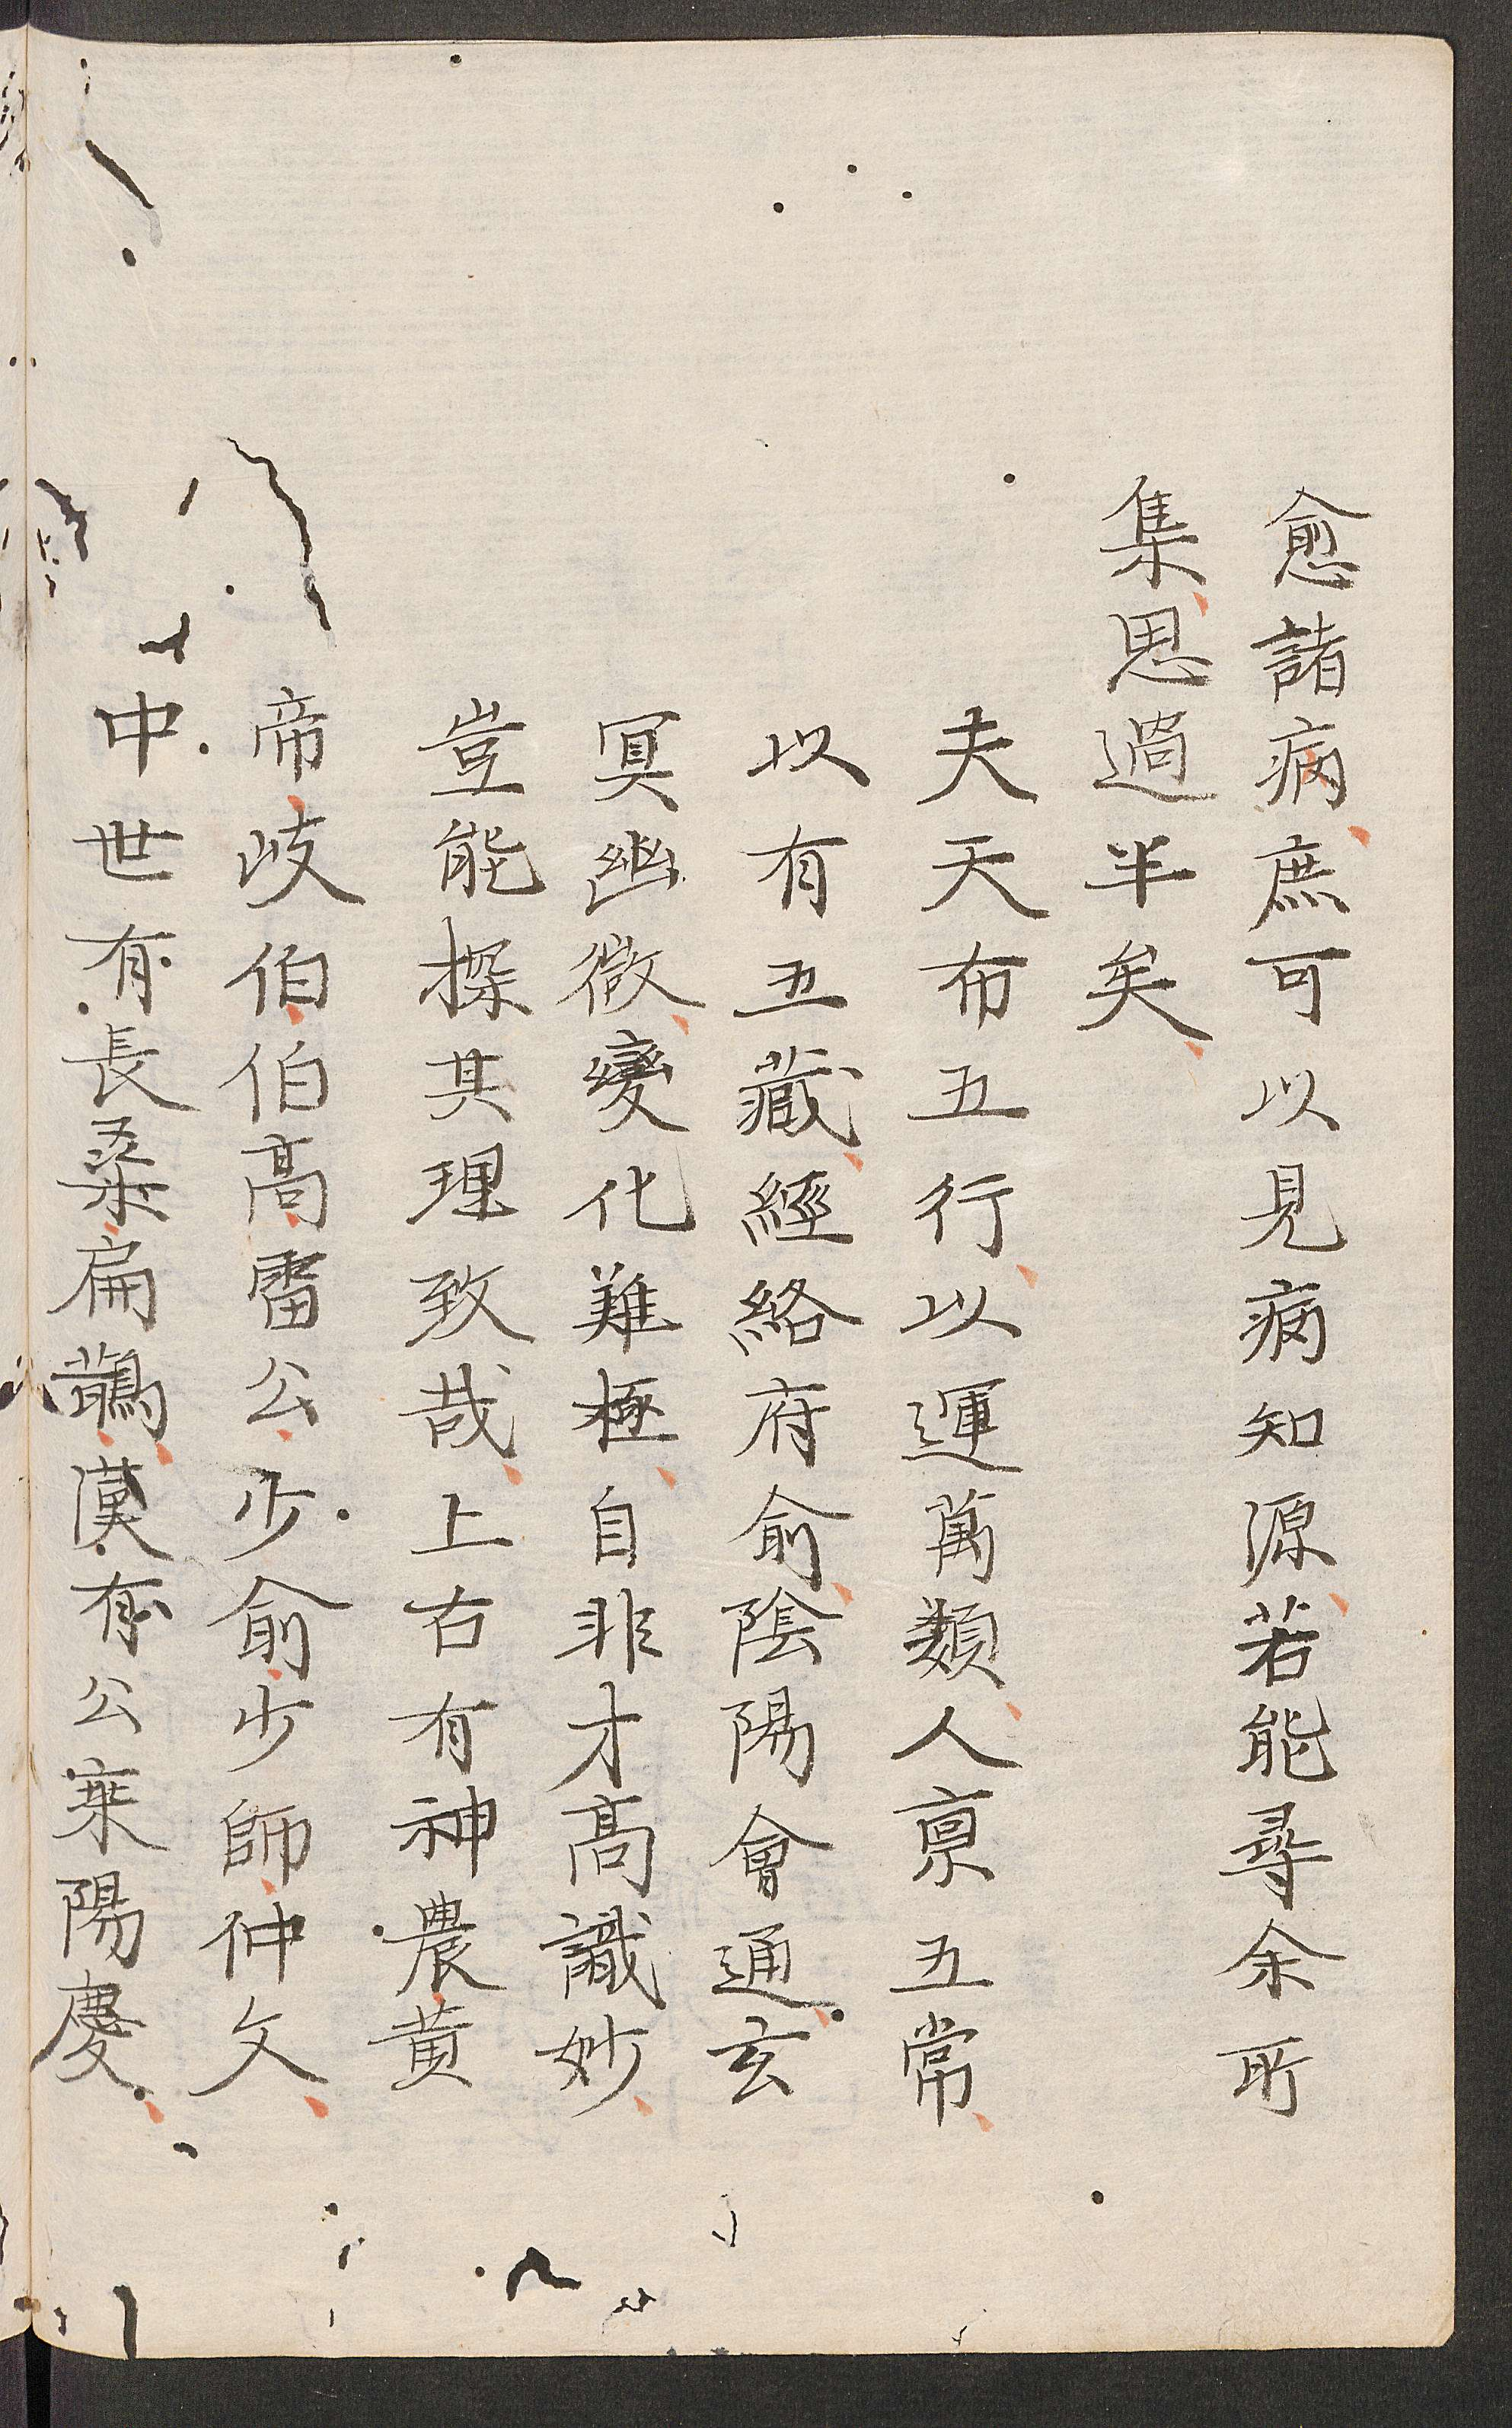 愈諸病庶可以見病知源若能尋余所
集思過半矣
夫天布五行以運萬類人禀五常
以有五藏經絡府俞陰陽會通玄
冥幽微變化難極自非才高識妙
豈能探其理致哉上古有神農黄
帝岐伯伯高雷公少俞少師仲文
中世有長桑扁鵲漢有公乘陽慶